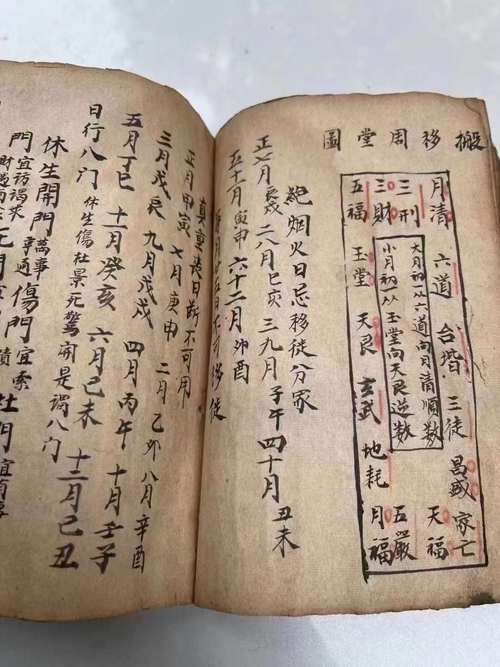 搬移周堂圖
月清 三刑 三財 五福
六道 台堦 三徒 昌盛 家亡
玉堂 天艮 玄武 地耗
天福 五嚴 月福
大月初一从六道向月清順数
小月初从玉堂向天艮逆数
絶烟火日忌移徒分家
正七月辰戌二八月巳亥三九月子午四十月丑未
五十一月寅申六十二月卯酉
五日不可移徒
真重丧日断不可用
正月甲寅 七月庚申 二月乙卯 八月辛酉
三月戊辰 九月戊戌 四月丙午 十月壬子
五月丁巳 十一月癸亥 六月己未 十二月己丑
日行八门 休生傷杜景死驚開是謂八门
休生開門萬事通傷門宜索
門宜訪谒求
杜門宜